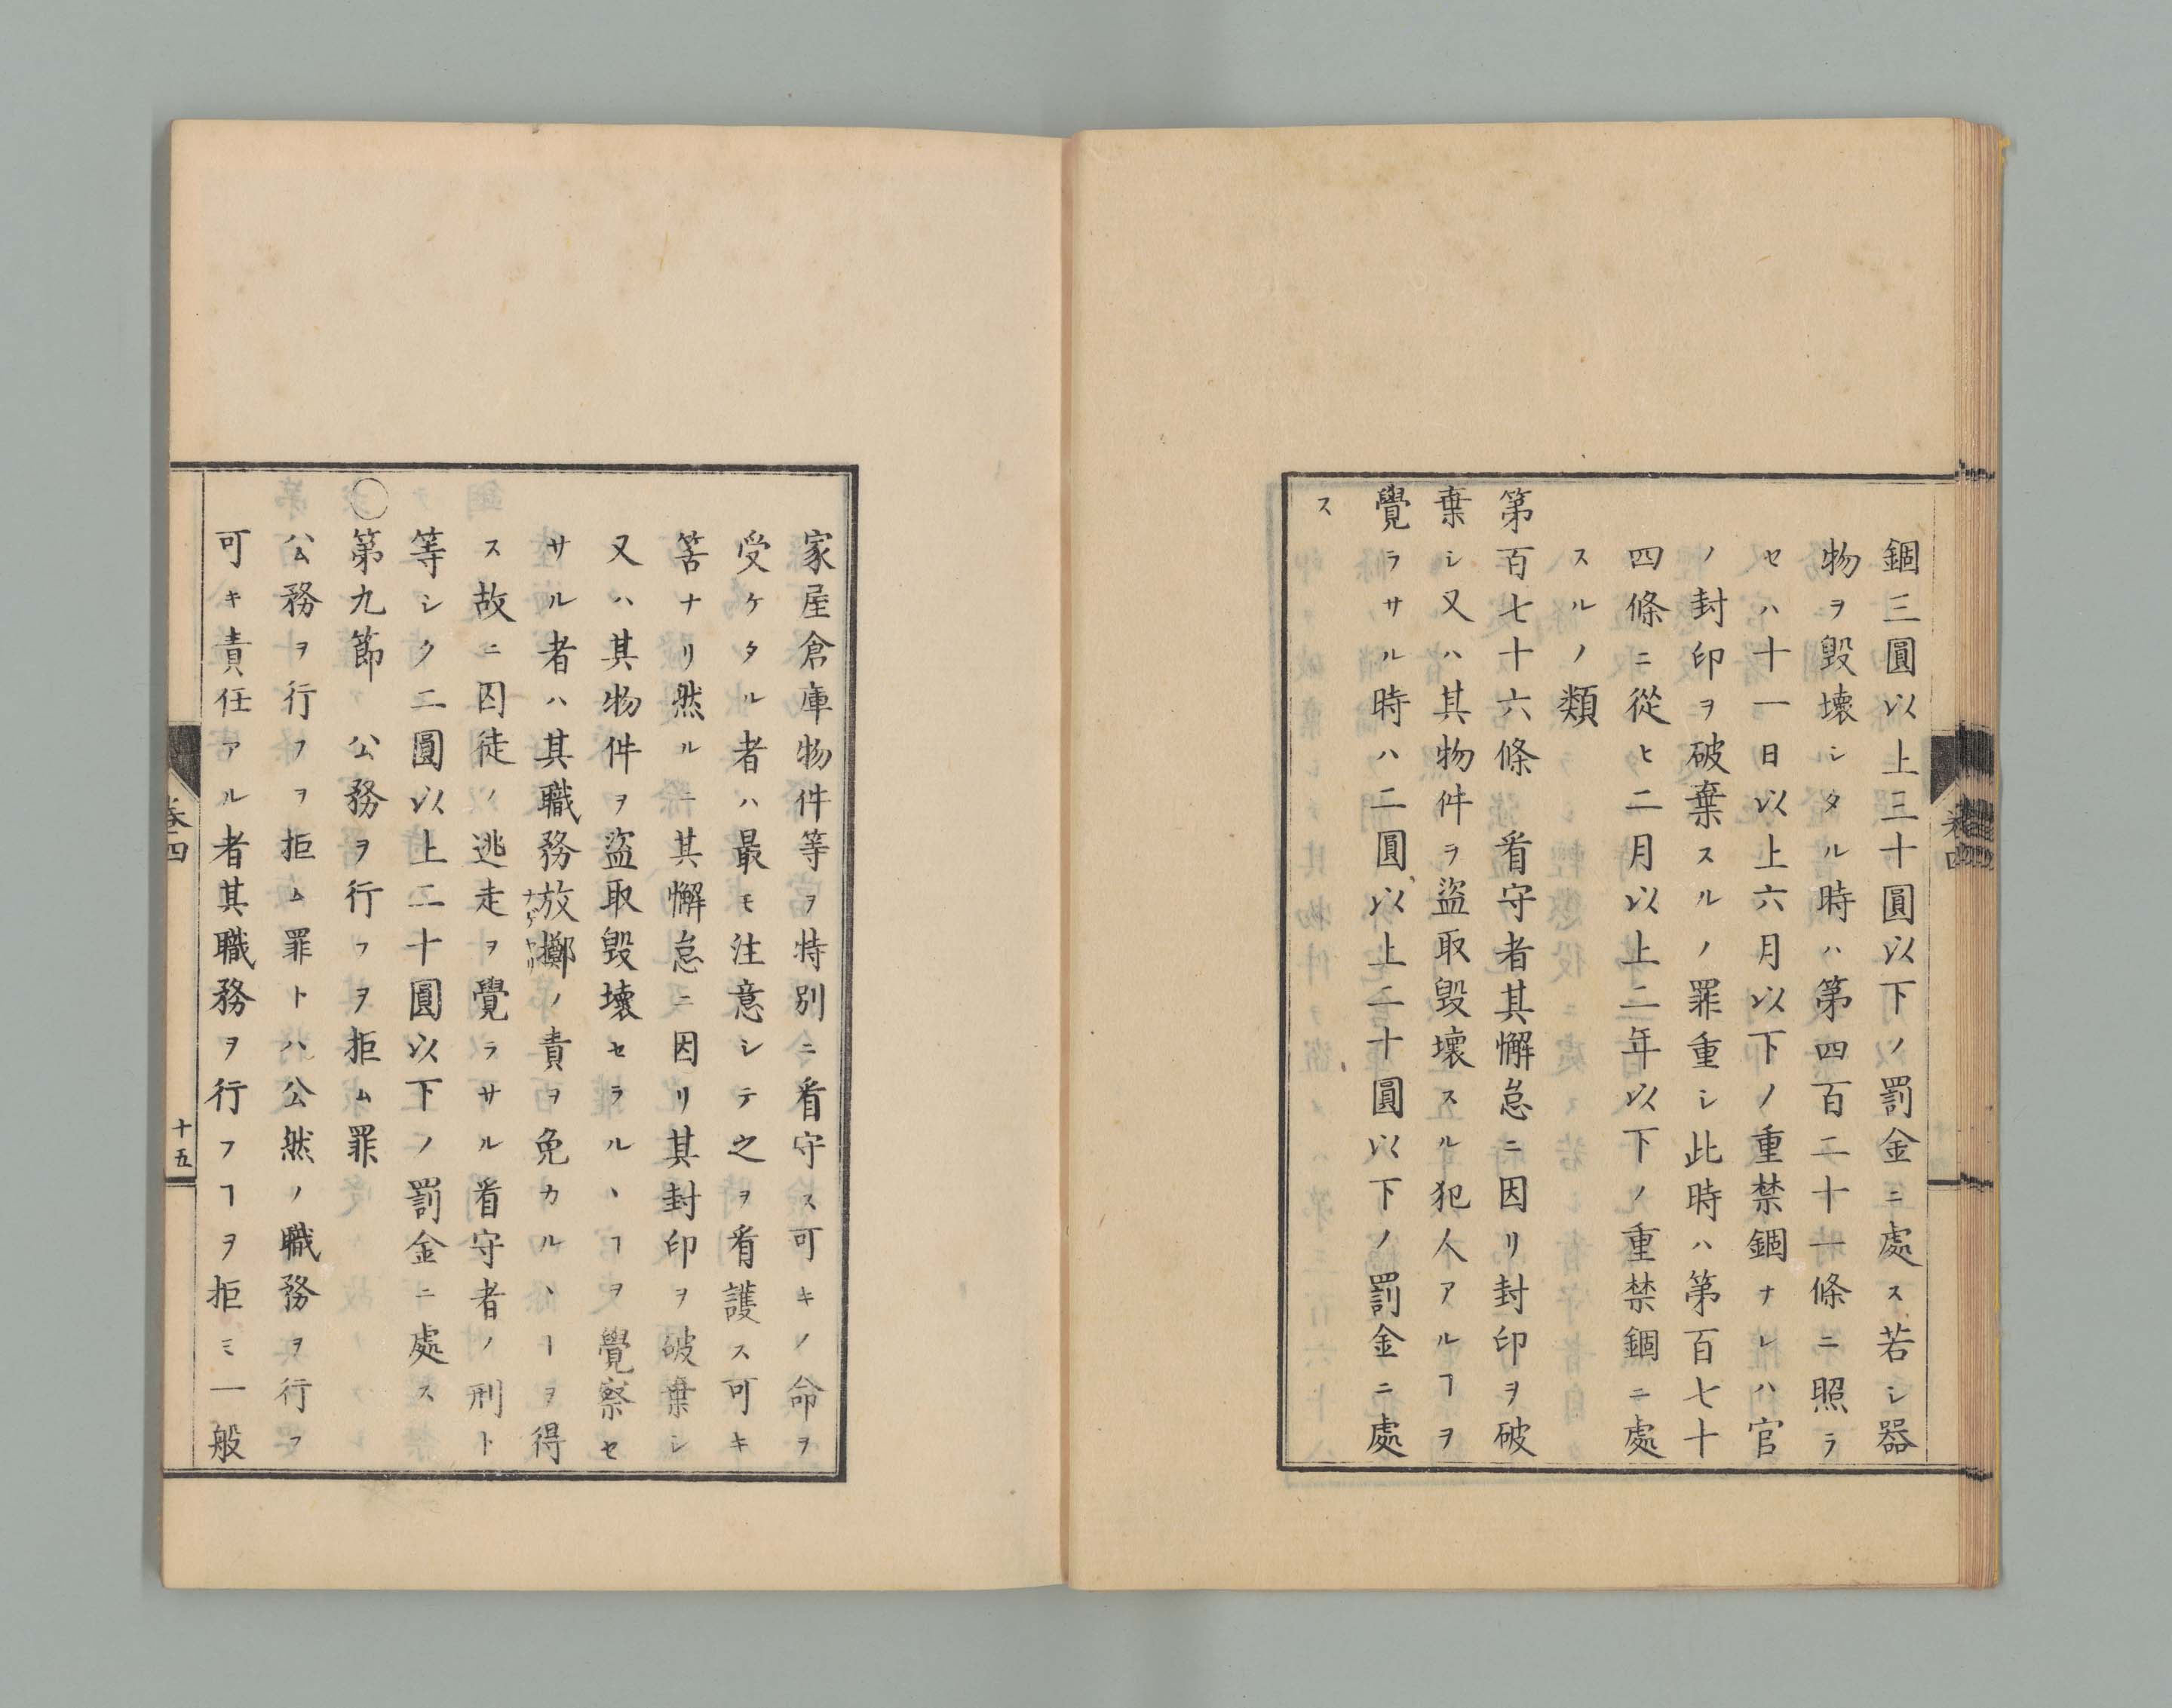 錮三圓以上三十圓以下ノ罰金ニ處ス若シ器
物ヲ毀壞シタル時ハ第四百二十一條ニ照ラ
セハ十一日以上六月以下ノ重禁錮ナレハ官
ノ封印ヲ破棄スルノ罪重シ此時ハ第百七十
四條ニ從ヒ二月以上二年以下ノ重禁錮ニ處
スルノ類
第百七十六條 看守者其懈怠ニ因リ封印ヲ破
棄シ又ハ其物件ヲ盜取毀壞スル犯人アルヿヲ
覺ラサル時ハ二圓以上二十圓以下ノ罰金ニ處
ス
家屋倉庫物件等ヲ特別ニ看守ス可キノ命ヲ
受ケタル者ハ最モ注意シテ之ヲ看護ス可キ
筈ナリ然ルニ其懈怠ニ因リ其封印ヲ破棄シ
又ハ其物件ヲ盜取毀壞セラルヽヿヲ覺察セ
サル者ハ其職務放擲ノ責ヲ免カルヽヿヲ得
ス故ニ囚徒ノ逃走ヲ覺ラサル看守者ノ刑ト
等シク二圓以上二十圓以下ノ罰金ニ處ス
○第九節 公務ヲ行フヲ拒ム罪
公務ヲ行フヲ拒ム罪トハ公然ノ職務ヲ行フ
可キ責任アル者其職務ヲ行フヿヲ拒ミ一般
卷四
十五